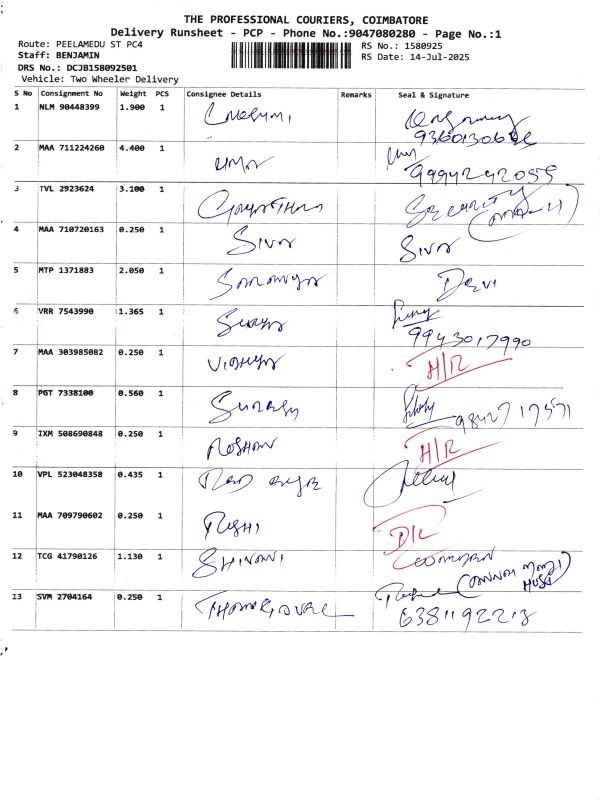 THE PROFESSIONAL COURIERS, COIMBATORE
Delivery Runsheet - PCP - Phone No.:9047080280 - Page No.:1
Route: PEELAMEDU ST PC4
RS No.: 1580925
Staff: BENJAMIN
RS Date: 14-Jul-2025
DRS No.: DCJB158092501
Vehicle: Two Wheeler Delivery
S No Consignment No Weight PCS Consignee Details Remarks Seal & Signature
1 NLM 90448399 1.900 1
2 MAA 711224260 4.400 1
9994242055
3 TVL 2923624 3.100 1 Gayathri Security
4 MAA 710720163 0.250 1 Siva Siva
5 MTP 1371883 2.050 1 Saranya Devi
6 VRR 7543990 1.365 1 Surya
9943017990
7 MAA 303985082 0.250 1 Vidhya H/R
8 PGT 7338100 0.560 1 Suresh 9842717571
9 IXM 508690848 0.250 1 Roshan H/R
10 VPL 523048358 0.435 1
11 MAA 709790602 0.250 1 Rishi D/L
12 TCG 41790126 1.130 1 Shivani
13 SVM 2704164 0.250 1
6381192213